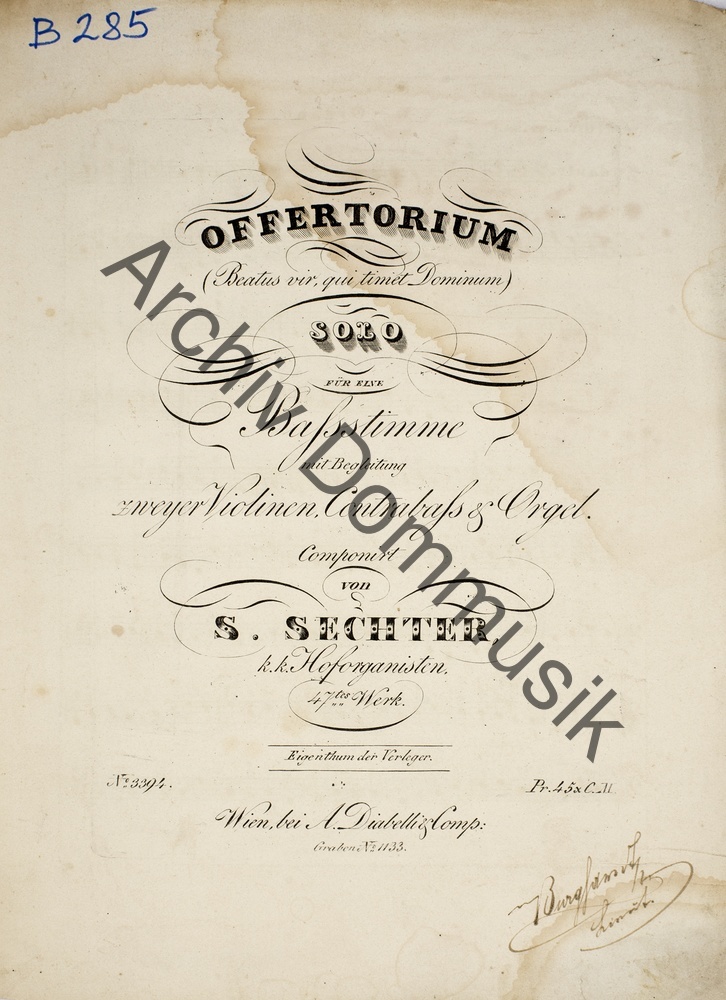 B 285
OFFERTORIUM
(Beatus vir, qui timet Dominum)
SOLO
FÜR EINE
Baſsstimme
mit Begleitung
zweyer Violinen, Contrabaſs & Orgel.
Componirt
von
S. SECHTER,
k. k. Hoforganisten.
47tes Werk.
Eigenthum der Verleger.
No. 3394.
Pr. 45 x C. M.
Wien, bei A. Diabelli & Comp:
Graben No. 1133.
Archiv Dommusik